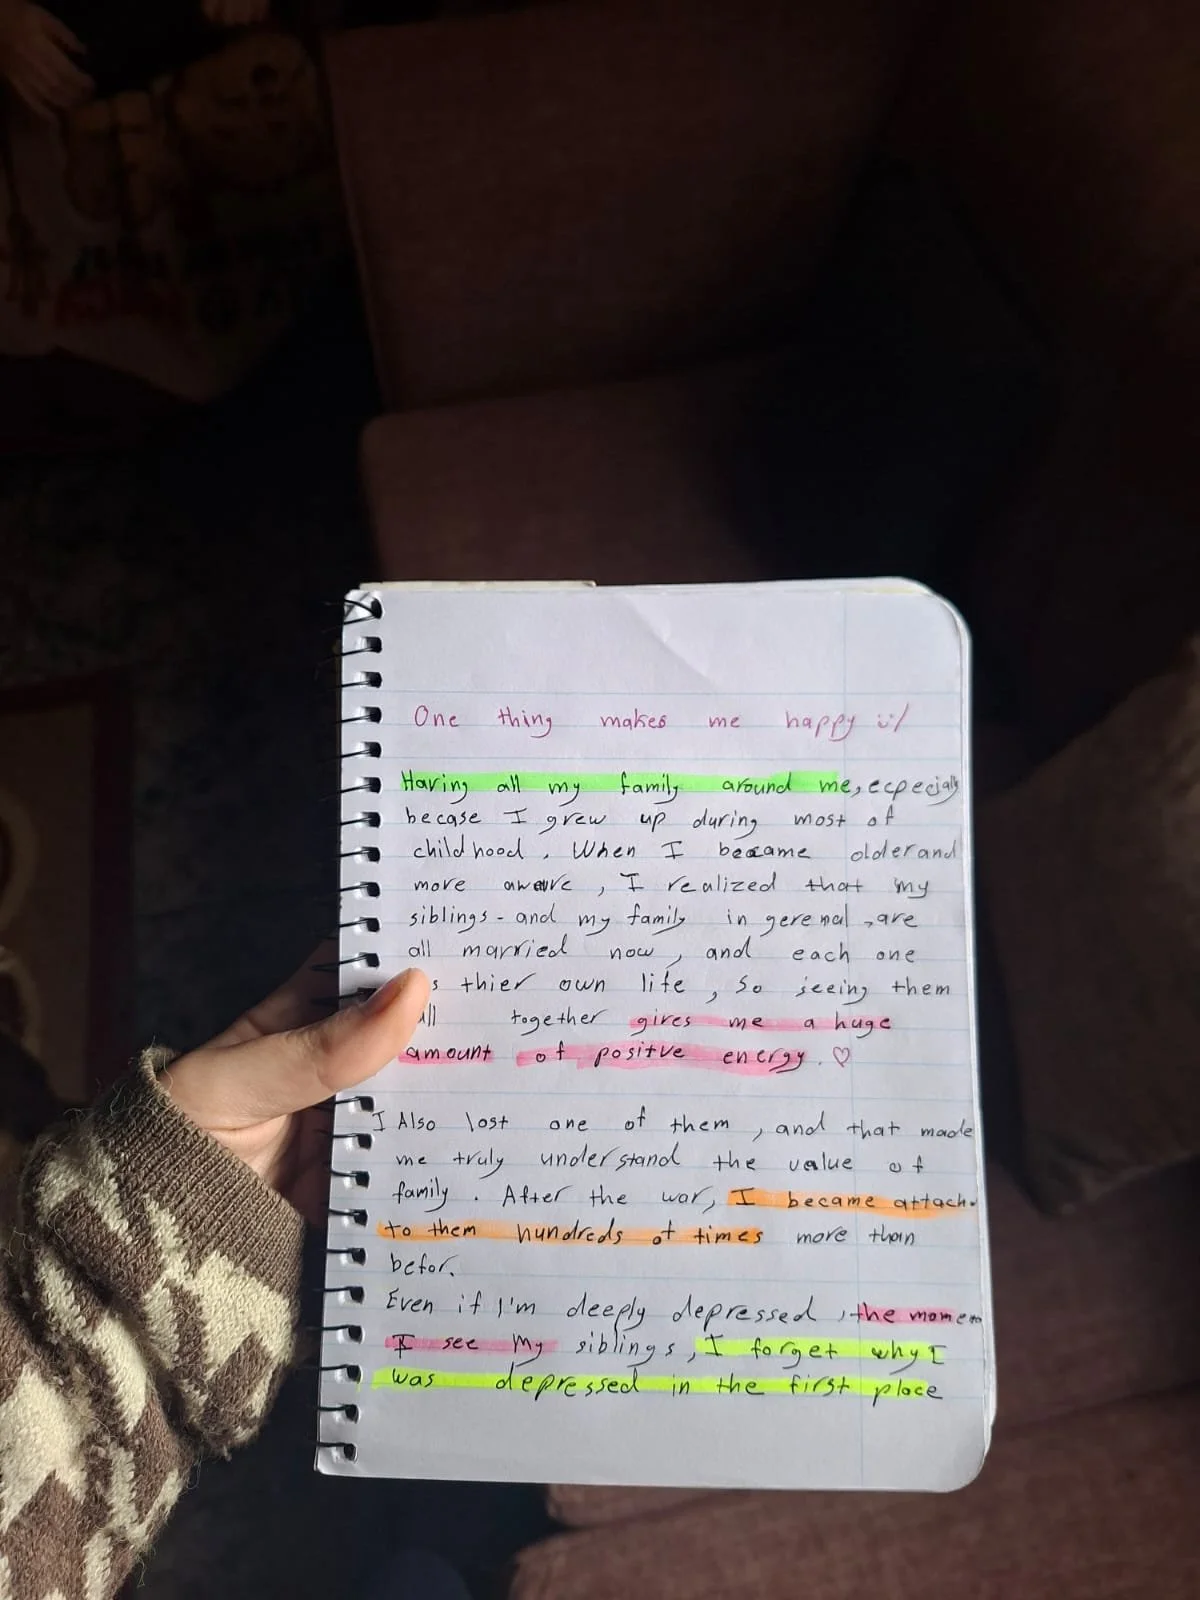 One thing makes me happy :)
Having all my family around me, ecpecially
becase I grew up during most of
childhood. When I became older and
more aware, I realized that my
siblings - and my family in gerenal, are
all married now, and each one
thier own life, so seeing them
together gives me a huge
amount of positve energy. ♡
I Also lost one of them, and that made
me truly understand the value of
family. After the war, I became attach
to them hundreds of times more than
befor.
Even if I'm deeply depressed, the momen
I see my siblings, I forget why I
was depressed in the first place